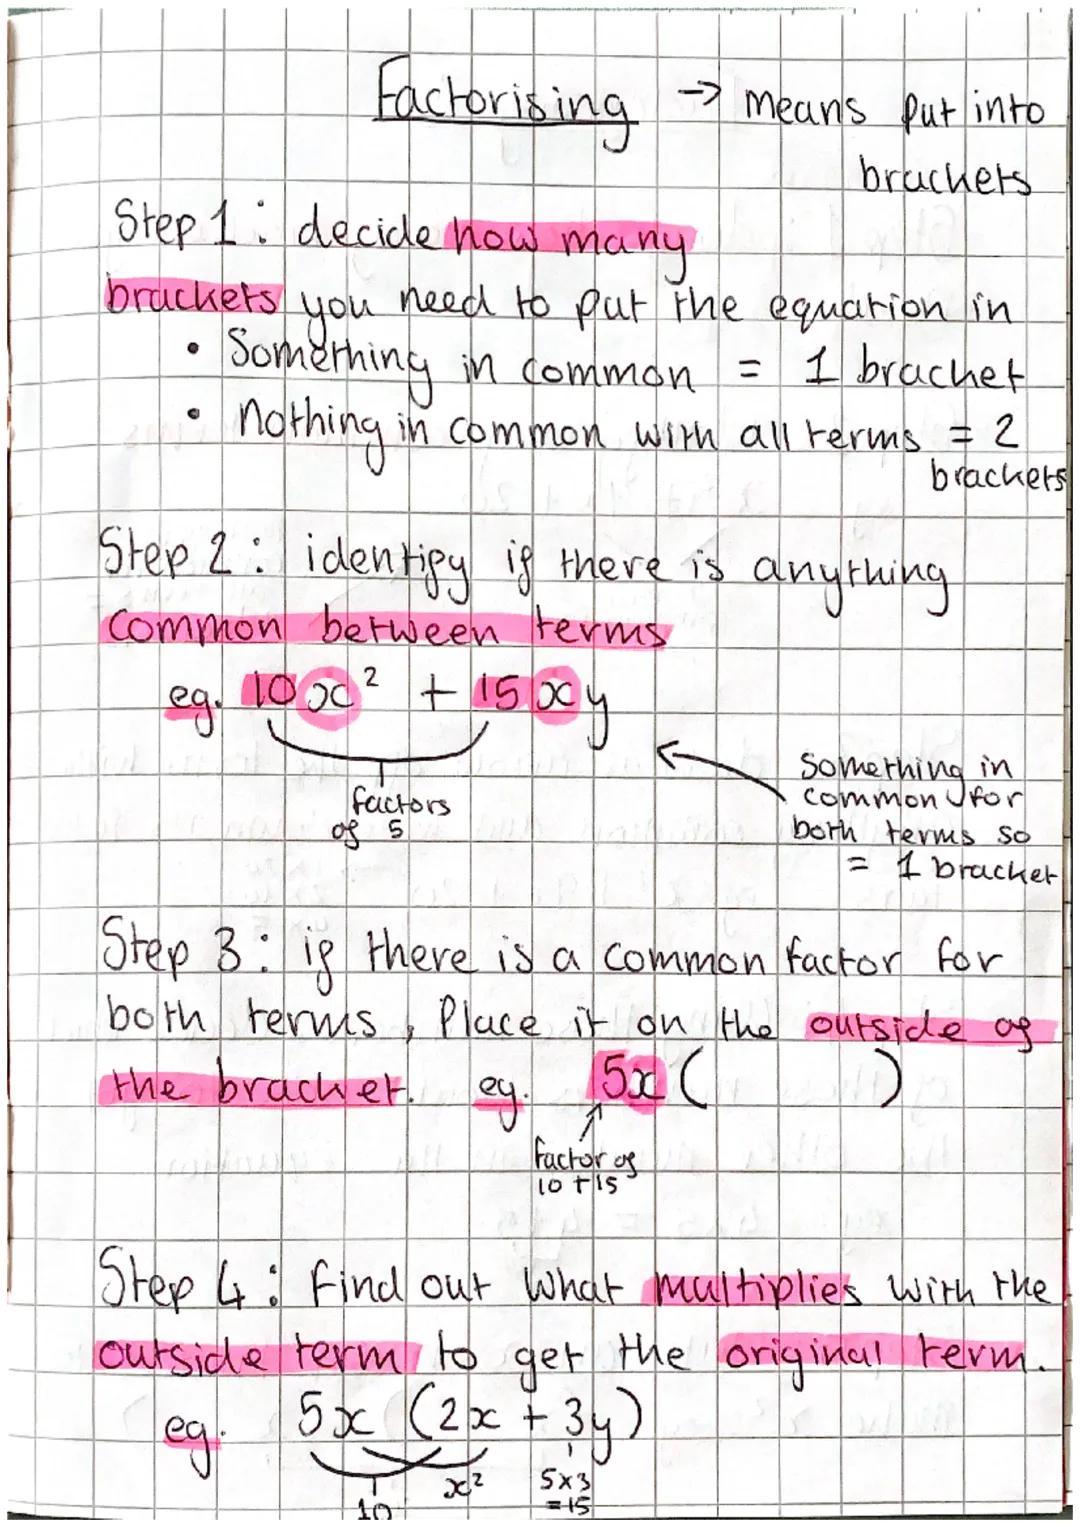 Factorising → means put into
brackets
Step 1: decide how many
brackets you need to put the equation in
• Something in common = 1 bracket
• nothing in common with all terms = 2
brackets
Step 2: identify if there is anything
common between terms
eg. 10x² + 15xy
factors
of 5
Something in
common for
both terms so
= 1 bracket
Step 3: if there is a common factor for
both terms, Place it on the outside of
the bracket. eg. 5x ( )
factor of
10 + 15
Step 4: Find out what multiplies with the
outside term to get the original term.
eg. 5x (2x + 3y)
10 x² 5x3
=15